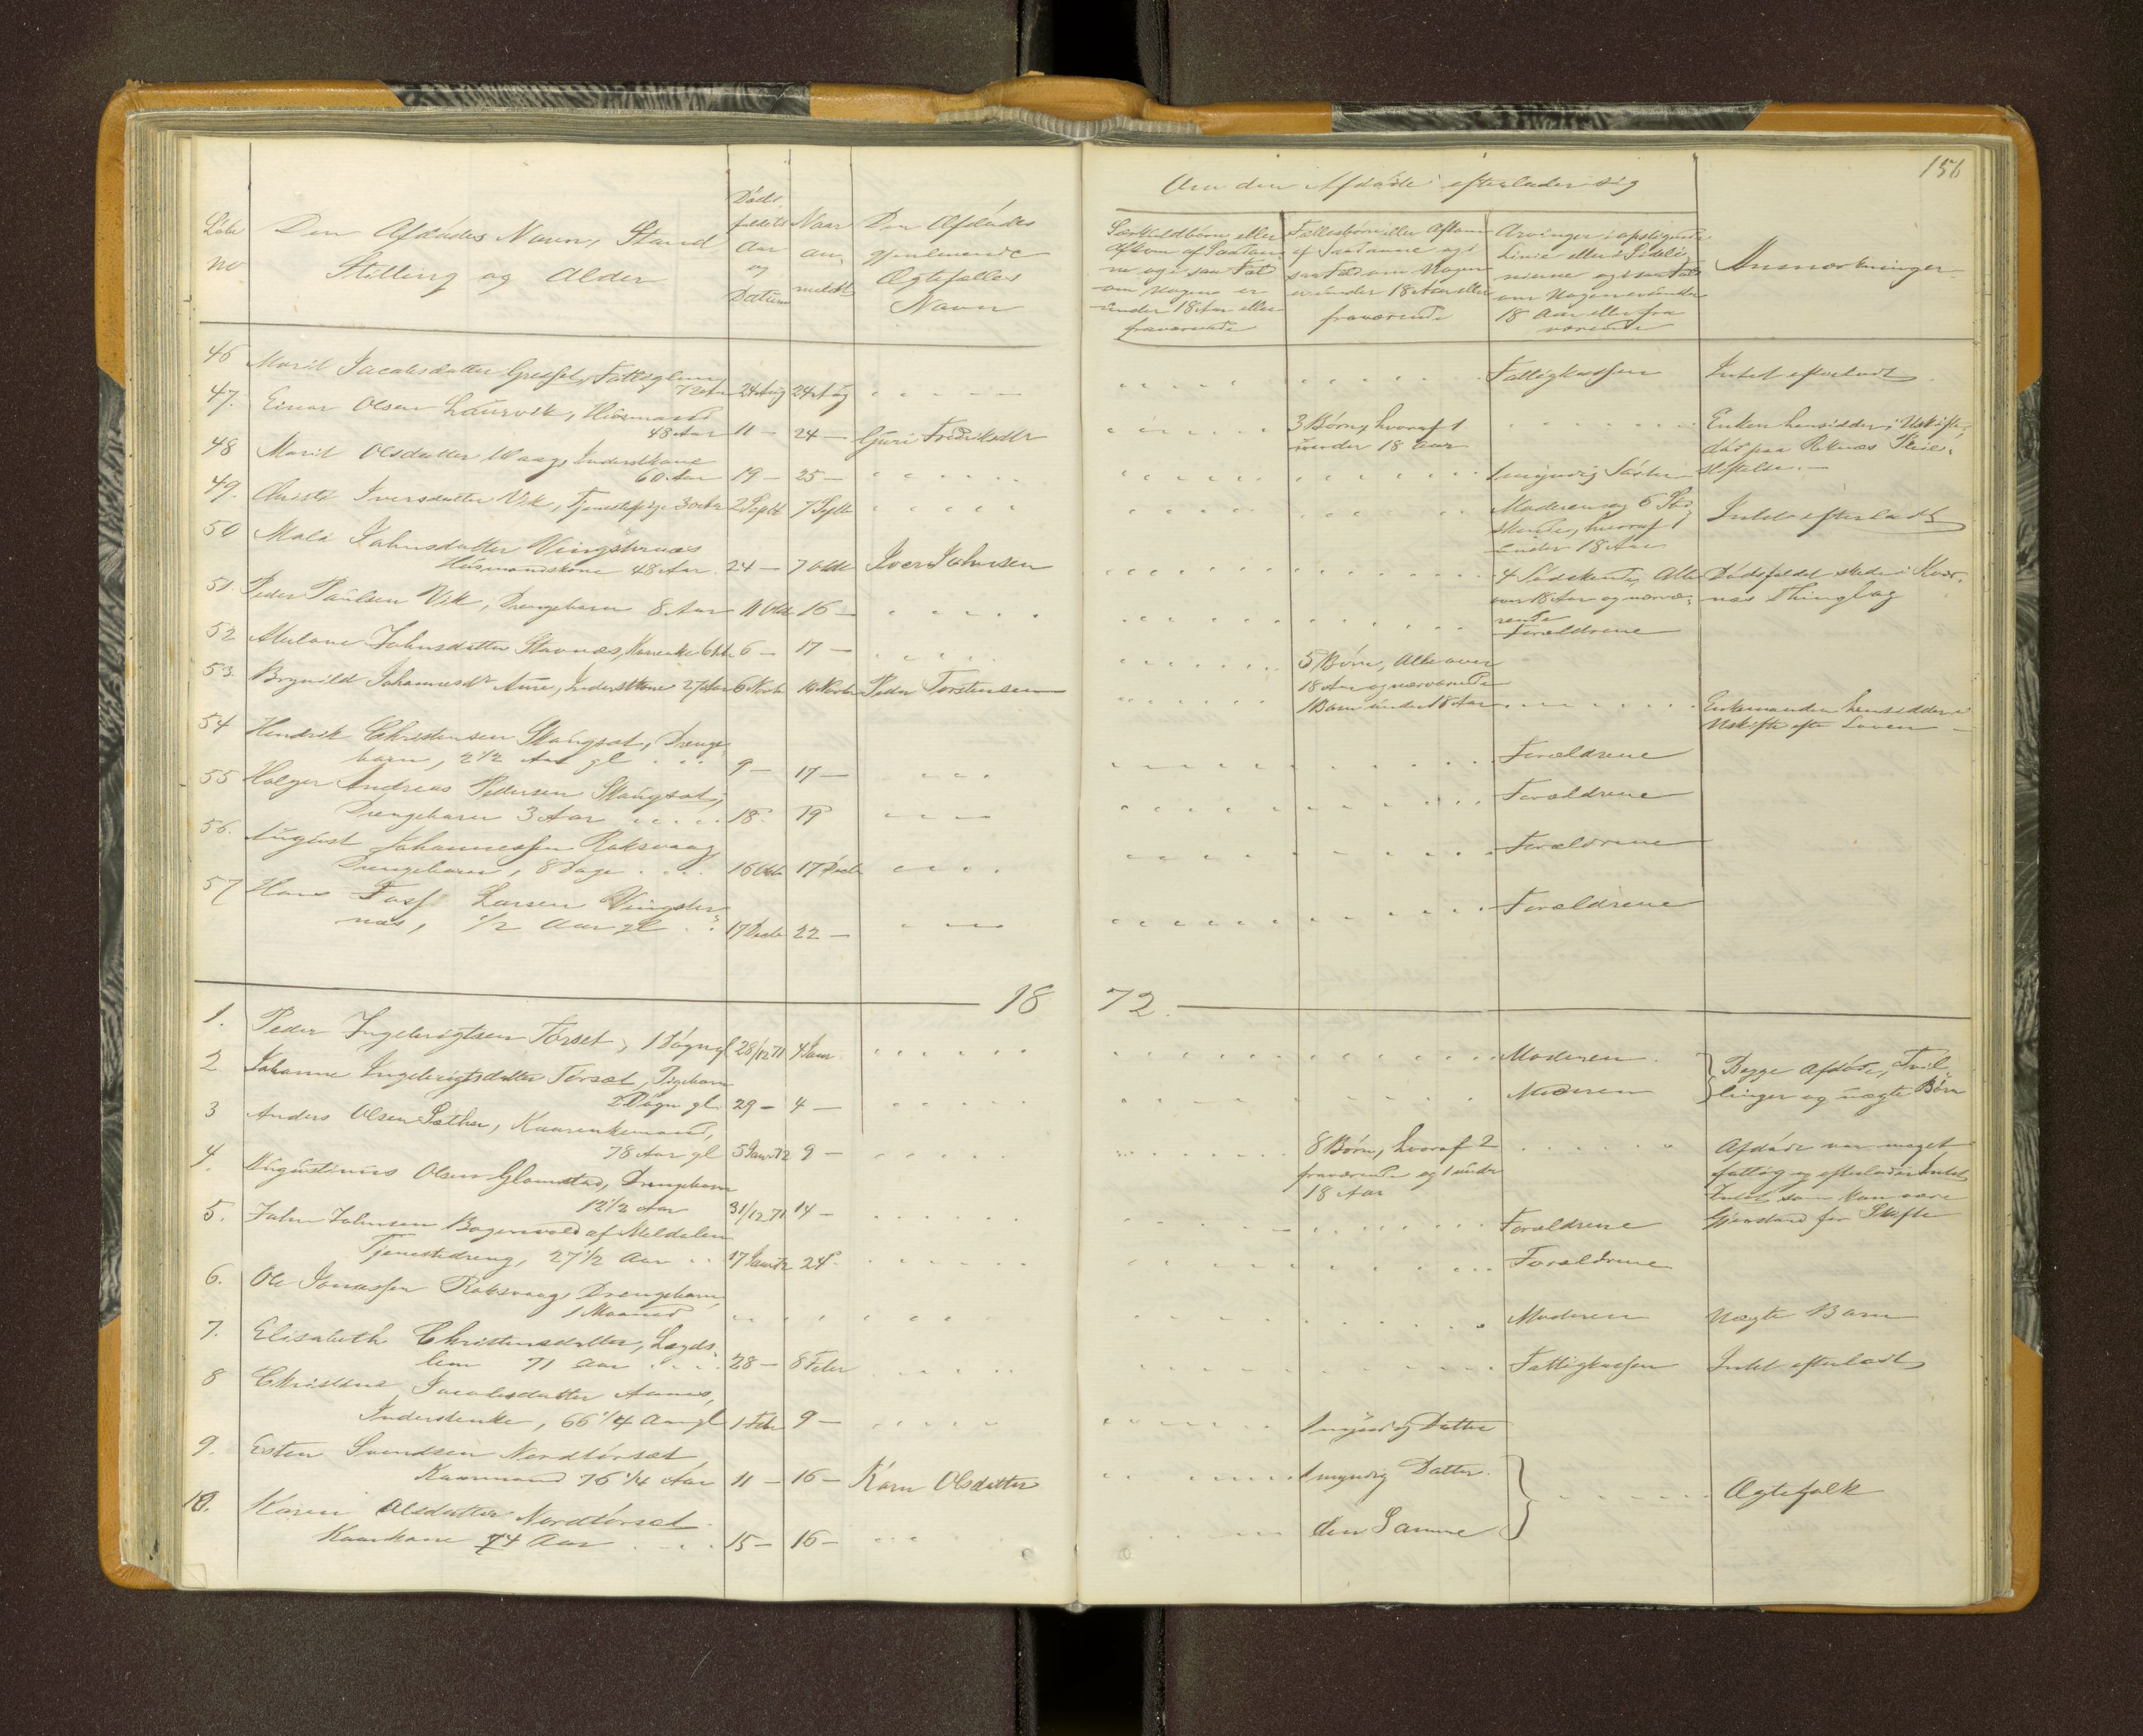 156
Om den Afdøde efterlader sig
Løbe no
Den Afdødes Navn, Stand
Stilling og Alder
Døds
faldets
Aar
og
Datum
Naar
an
meldt
Den Afdødes
gjenlevende
Ægtefælles
Navn
Særkuldbørn eller
Afkom af Saadan
ne og i saa Fald
om Nogen er
under 18 Aar eller
fraværende
Fællesbørn eller Afkom
af Saadanne og i
saa Fald om Nogen
er under 18 Aar eller
fraværende
Arvinger i opstigende
Linie eller i Sideli
nierne og i saa Fald
om Nogen er under
18 Aar eller fra
værende
Anmærkninger
46 Marit Jacobsdatter Fattiglem
72 Aar 24 Aug 24 Aug Fattigkassen Intet efterladt
47. Einar Olsen Laurvik, Huusmand
48 Aar 11 – 24 – Guri Fredriksdtr 3 Børn, hvoraf 1
under 18 Aar
Enken hensidder i Uskifte,
død paa Reknæs Pleie-
stiftelse. –
48 Marit Olsdatter Waag, Inderstkone
60 Aar 19 – 25 – 1 myndig Søster
49. Christi Iversdatter Vik, Tjenestepige 30 Aar 2 Septb 7 Septb Moderen og 6 Sø
skende, hvoraf 1
under 18 Aar
Intet efterladt
50 Mali Johnsdatter Vingsternæs
Husmandskone 48 Aar. 24 – 7 Oktb Iver Johnsen 4 Södskende, Alle
over 18 Aar og nærvæ-
rende
Dødsfaldet skede i Kvær-
næs Thinglag
51. Peder Paulsen Vik, Drengebarn 8 Aar 11 Oktb 16 – Forældrene
52 Johnsdatter Stavnæs, 6 – 17 – 5 Børn, Alle over
18 Aar og nærværende
53. Brynild Johannesdr Aure, Inderstkone 27 Aar 6 Novbr 16 Novbr Peder Torstensen 1 Barn under 18 Aar Enkemanden hensidder i
Uskifte efter Loven –
54 Hendrik Christensen Skaugset, Drenge
barn, 2 1/2 Aar gl 9 – 17 – Forældrene
55 Holger Andreas Pedersen Skaugset,
Drengebarn 3 Aar 18. 19 Forældrene
56. August Johannessen Roksvaag,
Drengebarn, 8 Dage 16 Oktb 17 Decb Forældrene
57 Hans Larsen Vingster-
næs, 1/2 Aar gl 17 Decb 22 – Forældrene
18 72.
1. Peder Ingebrigtsen Torset, 1 Døgn gl 28/12 71 4 Jan. Moderen
Begge Afdøde, Tvil
linger og uægte Børn
2. Johanne Ingebrigtsdatter Torset, Pigebarn
2 Døgn gl. 29 – 4 – Moderen
3 Anders Olsen Sæther, Kaarenkemand,
78 Aar gl 5 Jan 72 9 – 8 Børn, hvoraf 2
fraværende og 1 under
18 Aar
Afdøde var meget
fattig og efterlader Intet
Intet som kan være
Gjenstand for Skifte
4. Augustinus Olsen Glomstad, Drengebarn
12 1/2 Aar 31/12 71 14 – Forældrene
5. John Johnsen af Meldalen
Tjenestedreng, 27 1/2 Aar 17 Jan 72 24 Forældrene
6. Ole Jonassen Roksvaag, Drengebarn,
1 Maaned Moderen Uægte Barn
7. Elisabeth Christensdatter, Lægds-
lem 71 Aar 28 – 8 Feber Fattigkassen Intet efterladt
8 Christine Jacobsdatter Aanes,
Inderstenke, 66 1/4 Aar gl 1 Feb 9 – 1 myndig Datter
9. Esten Svendsen Nordtørset
Kaarmand 76 1/4 Aar 11 – 16 – Karn Olsdatter 1 myndig Datter. Ægtefolk
10. Karen Olsdatter Nordtørset
Kaarkone 74 Aar 15 – 16 – den Samme